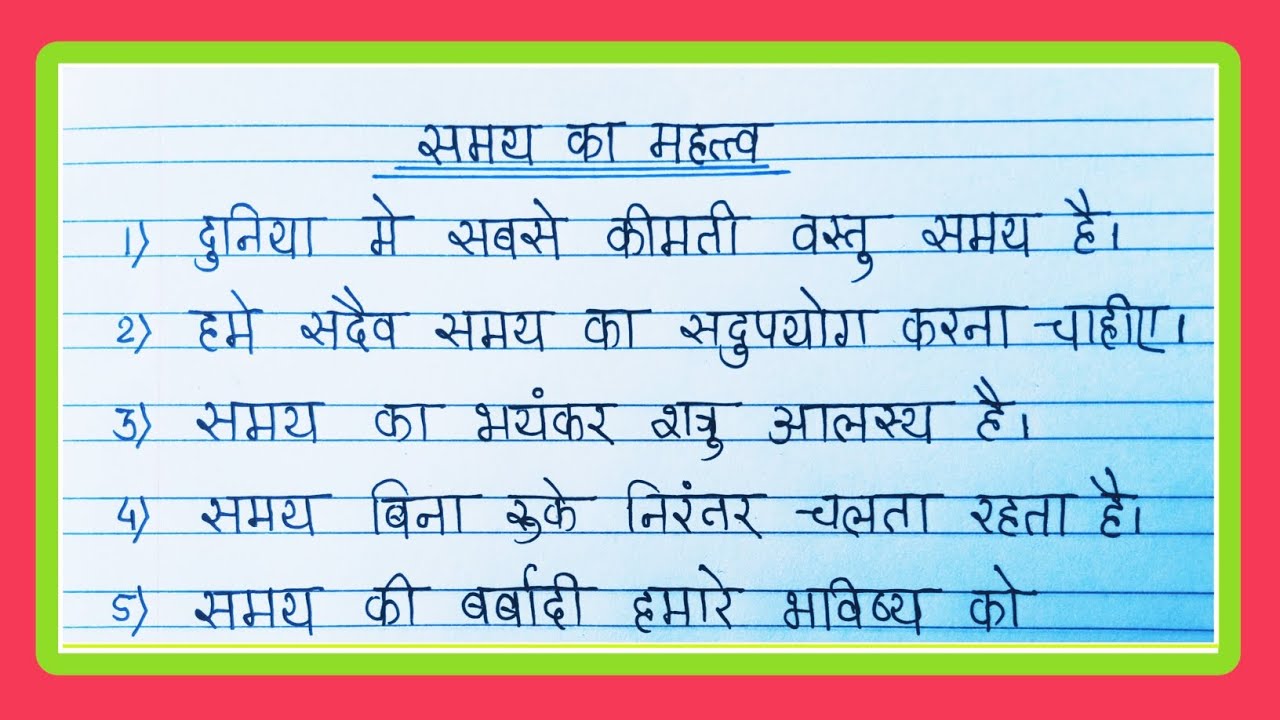 समय का महत्त्व
1) दुनिया मे सबसे कीमती वस्तु समय है।
2) हमे सदैव समय का सदुपयोग करना चाहीए।
3) समय का भयंकर शत्रु आलस्य है।
4) समय बिना रुके निरंतर चलता रहता है।
5) समय की बर्बादी हमारे भविष्य को